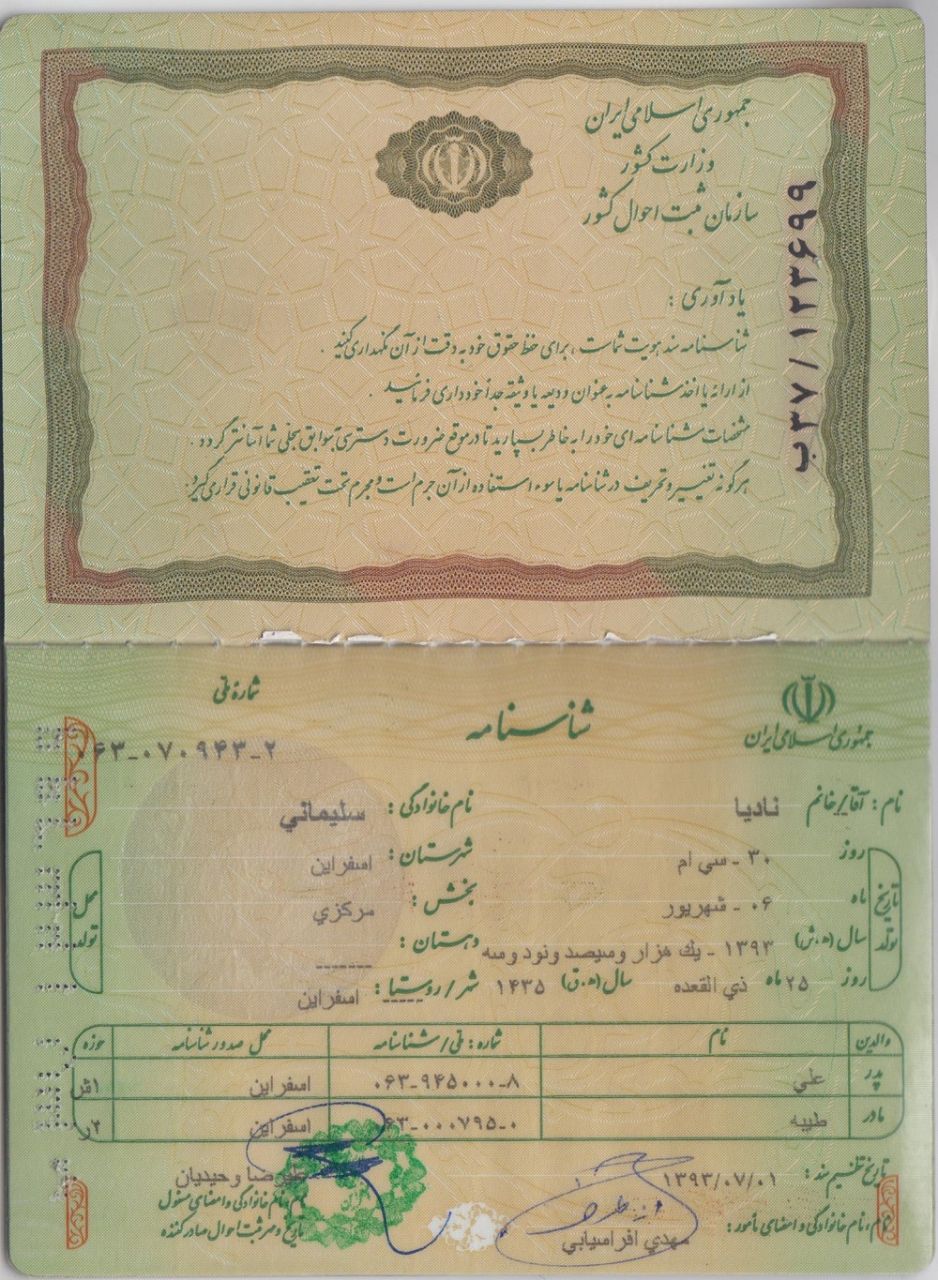 جمهوری اسلامی ایران
وزارت کشور
سازمان ثبت احوال کشور
ب۳۷/۱۲۳۶۹۹
یادآوری :
شناسنامه سند هویت شماست ، برای حفظ حقوق خود به دقت از آن نگهداری کنید .
از ارائه یا اخذ شناسنامه به عنوان ودیعه یا وثیقه جداً خودداری فرمائید .
مشخصات شناسنامه ای خود را به خاطر بسپارید تا در موقع ضرورت دسترسی به سوابق سجلی شما آسانتر گردد .
هرگونه تغییر و تحریف در شناسنامه یا سوء استفاده از آن جرم است و مجرم تحت تعقیب قانونی قرار می گیرد.
جمهوری اسلامی ایران
شناسنامه
شماره ملی
۰۶۳-۰۷۰۹۴۳-۲
نام : آقا/خانم نادیا نام خانوادگی : سليماني
تاریخ تولد روز ۳۰ - سي ام
ماه ۰۶ - شهريور
سال (ه.ش) ۱۳۹۳ - يك هزار وسيصد ونود وسه
روز ۲۵ ماه ذي القعده سال (ه.ق) ۱۴۳۵
محل تولد شهرستان : اسفراين
بخش : مركزي
دهستان : -------
شهر/روستا : اسفراين
والدین نام شماره : ملی/شناسنامه محل صدور شناسنامه حوزه
پدر علي ۰۶۳-۹۴۵۰۰۰-۸ اسفراين ۱ش
مادر طيبه ۶۳-۰۰۰۷۹۵-۰ اسفراين ۲ر
تاریخ تنظیم سند : ۱۳۹۳/۰۷/۰۱
نام ، نام خانوادگی و امضای مأمور : مهدي افراسيابي
عليرضا وحيديان
نام ، نام خانوادگی و امضای مسئول
تاریخ و مهر ثبت احوال صادرکننده